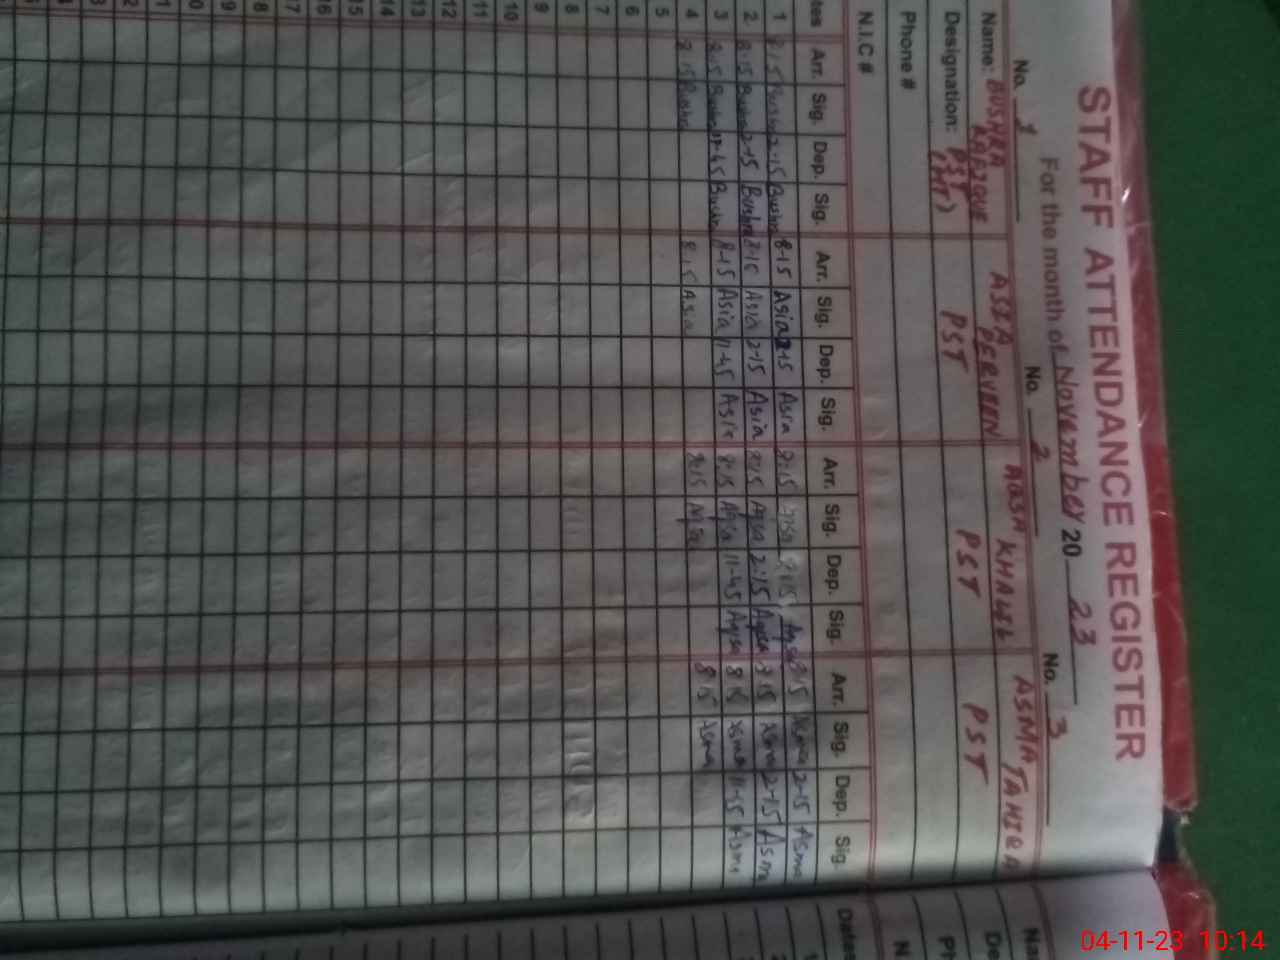 STAFF ATTENDANCE REGISTER
For the month of November 20 23
No. 1 No. 2 No. 3
Name: BUSHRA RAFIQUE ASIA PERVEEN AQSA KHALIL ASMA TAHIRA
Designation: PST (HT) PST PST PST
Phone #
N.I.C #
tes Arr. Sig. Dep. Sig. Arr. Sig. Dep. Sig. Arr. Sig. Dep. Sig. Arr. Sig. Dep. Sig.
1 8.15 Bushra 2-15 Bushra 8-15 Asia 2-15 Asia 8:15 Aqsa 8-15 Asma 2-15 Asma
2 8.15 Bushra 2-15 Bushra 8-15 Asia 2-15 Asia 8:15 Aqsa 2:15 Aqsa 8-15 Asma 2-15 Asma
3 8:15 Bushra 11-45 Bushra 8-15 Asia 11-45 Asia 8:15 Aqsa 11-45 Aqsa 8-15 Asma Asma
4 8.15 Bushra 8.15 Asia 8:15 Aqsa 8-15 Asma
5
6
7
8
9
10
11
12
13
14
15
16
17
8
9
0
1
2
3
4
5
Dates
04-11-23 10:14